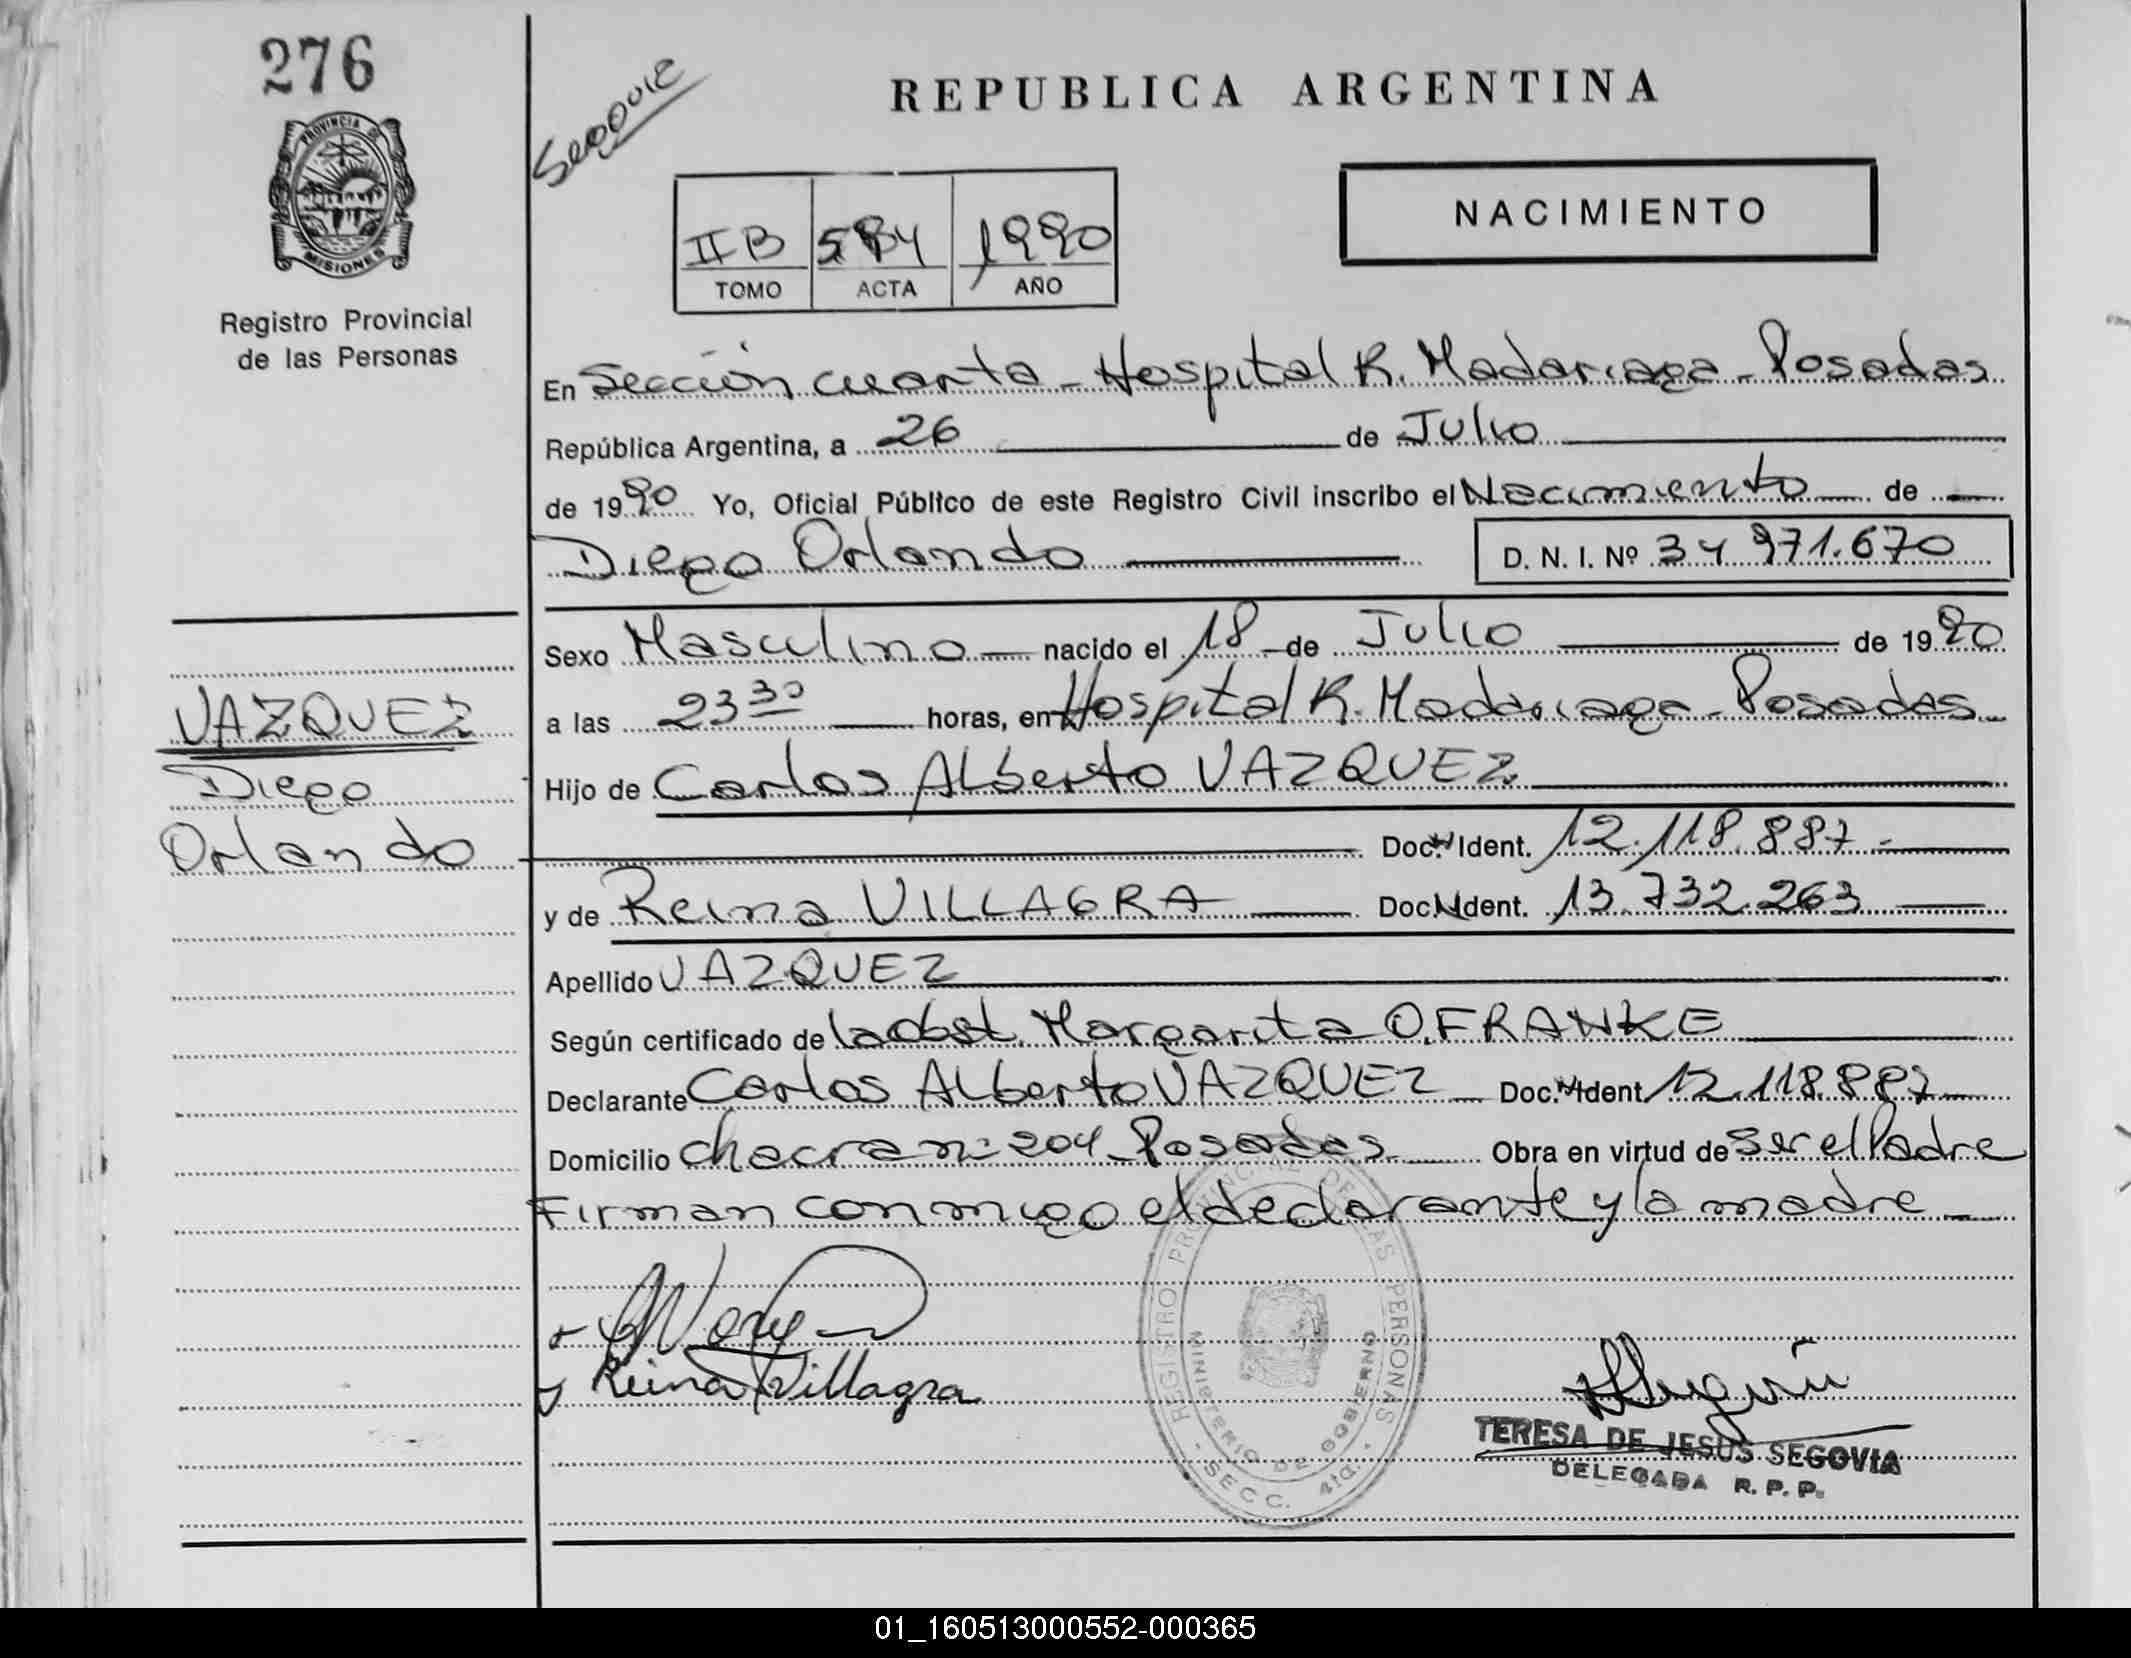 276
PROVINCIA DE
MISIONES
Registro Provincial
de las Personas
REPUBLICA ARGENTINA
NACIMIENTO
IIB 584 1990
TOMO ACTA AÑO
En Sección cuarta - Hospital R. Madariaga - Posadas
República Argentina, a 26 de Julio
de 1990 Yo, Oficial Público de este Registro Civil inscribo el Nacimiento de
Diego Orlando D. N. I. Nº 34 971.670
Sexo Masculino nacido el 18 de Julio de 1990
VAZQUEZ
Diego
Orlando
a las 23 30 horas, en Hospital R. Madariaga - Posadas
Hijo de Carlos Alberto VAZQUEZ
Doc. Ident. 12.118.887.-
y de Reina VILLAGRA Doc. Ident. 13.732.263
Apellido VAZQUEZ
Según certificado de la obst. Margarita O. FRANKE
Declarante Carlos Alberto VAZQUEZ Doc. Ident 12.118.887
Domicilio chacra nº 204 - Posadas Obra en virtud de ser el Padre
Firman conmigo el declarante y la madre
Reina Villagra
REGISTRO PROVINCIAL DE LAS PERSONAS
MINISTERIO DE GOBIERNO
SECC. 4ta.
TERESA DE JESUS SEGOVIA
DELEGADA R. P. P.
01_160513000552-000365